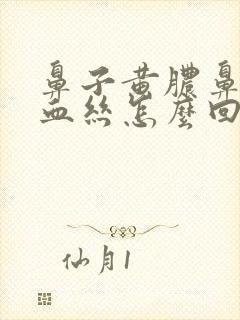 鼻子黄膿鼻
血丝怎麼回
仙月1